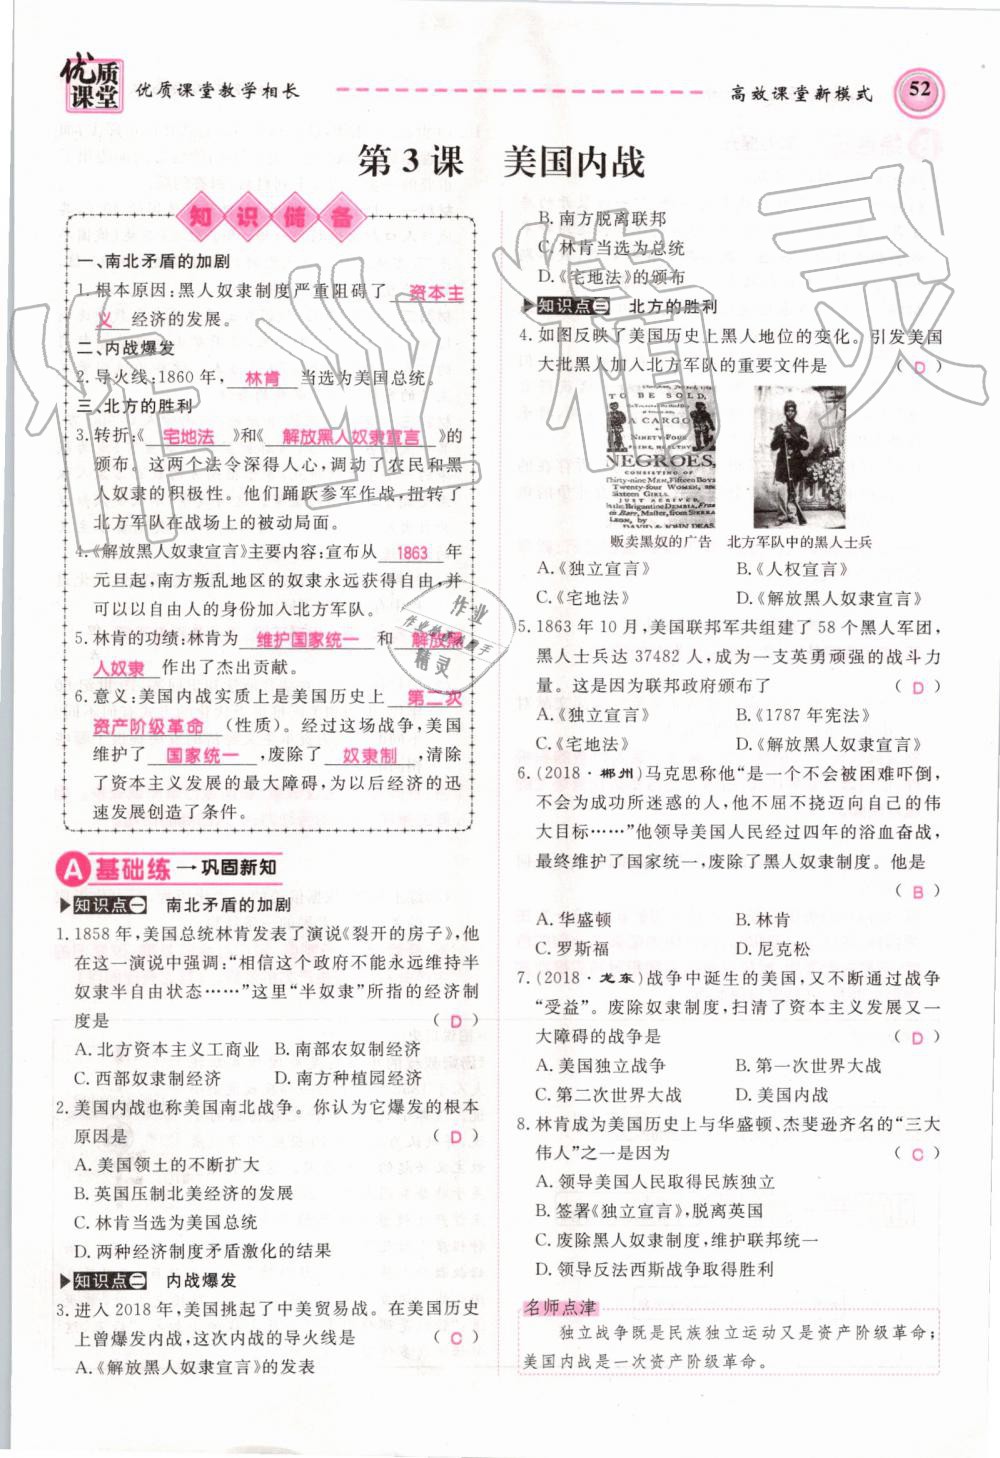 优质课堂
优质课堂教学相长
高效课堂新模式
52
第3课 美国内战
知识储备
一、南北矛盾的加剧
1. 根本原因:黑人奴隶制度严重阻碍了 资本主
义 经济的发展。
二、内战爆发
2. 导火线:1860年, 林肯 当选为美国总统。
三、北方的胜利
3. 转折:《 宅地法 》和《 解放黑人奴隶宣言 》的
颁布。这两个法令深得人心,调动了农民和黑
人奴隶的积极性。他们踊跃参军作战,扭转了
北方军队在战场上的被动局面。
4.《解放黑人奴隶宣言》主要内容:宣布从 1863 年
元旦起,南方叛乱地区的奴隶永远获得自由,并
可以以自由人的身份加入北方军队。
5. 林肯的功绩:林肯为 维护国家统一 和 解放黑
人奴隶 作出了杰出贡献。
6. 意义:美国内战实质上是美国历史上 第二次
资产阶级革命 (性质)。经过这场战争,美国
维护了 国家统一 ,废除了 奴隶制 ,清除
了资本主义发展的最大障碍,为以后经济的迅
速发展创造了条件。
A 基础练 → 巩固新知
知识点一 南北矛盾的加剧
1. 1858年,美国总统林肯发表了演说《裂开的房子》,他
在这一演说中强调:“相信这个政府不能永远维持半
奴隶半自由状态……”这里“半奴隶”所指的经济制
度是 ( D )
A. 北方资本主义工商业 B. 南部农奴制经济
C. 西部奴隶制经济 D. 南方种植园经济
2. 美国内战也称美国南北战争。你认为它爆发的根本
原因是 ( D )
A. 美国领土的不断扩大
B. 英国压制北美经济的发展
C. 林肯当选为美国总统
D. 两种经济制度矛盾激化的结果
知识点二 内战爆发
3. 进入2018年,美国挑起了中美贸易战。在美国历史
上曾爆发内战,这次内战的导火线是 ( C )
A.《解放黑人奴隶宣言》的发表
B. 南方脱离联邦
C. 林肯当选为总统
D.《宅地法》的颁布
知识点三 北方的胜利
4. 如图反映了美国历史上黑人地位的变化。引发美国
大批黑人加入北方军队的重要文件是 ( D )
TO BE SOLD,
A CARGO
NINETY-FOUR
NEGROES,
CONSISTING OF
Thirty-nine MEN, Fifteen BOYS
Twenty-four WOMEN, and
Sixteen GIRLS.
JUST ARRIVED,
DAVID & JOHN DEAS.
贩卖黑奴的广告 北方军队中的黑人士兵
A.《独立宣言》 B.《人权宣言》
C.《宅地法》 D.《解放黑人奴隶宣言》
5. 1863年10月,美国联邦军共组建了58个黑人军团,
黑人士兵达37482人,成为一支英勇顽强的战斗力
量。这是因为联邦政府颁布了 ( D )
A.《独立宣言》 B.《1787年宪法》
C.《宅地法》 D.《解放黑人奴隶宣言》
6. (2018·郴州)马克思称他“是一个不会被困难吓倒,
不会为成功所迷惑的人,他不屈不挠迈向自己的伟
大目标……”他领导美国人民经过四年的浴血奋战,
最终维护了国家统一,废除了黑人奴隶制度。他是
( B )
A. 华盛顿 B. 林肯
C. 罗斯福 D. 尼克松
7. (2018·龙东)战争中诞生的美国,又不断通过战争
“受益”。废除奴隶制度,扫清了资本主义发展又一
大障碍的战争是 ( D )
A. 美国独立战争 B. 第一次世界大战
C. 第二次世界大战 D. 美国内战
8. 林肯成为美国历史上与华盛顿、杰斐逊齐名的“三大
伟人”之一是因为 ( C )
A. 领导美国人民取得民族独立
B. 签署《独立宣言》,脱离英国
C. 废除黑人奴隶制度,维护联邦统一
D. 领导反法西斯战争取得胜利
名师点津
独立战争既是民族独立运动又是资产阶级革命;
美国内战是一次资产阶级革命。
作业精灵